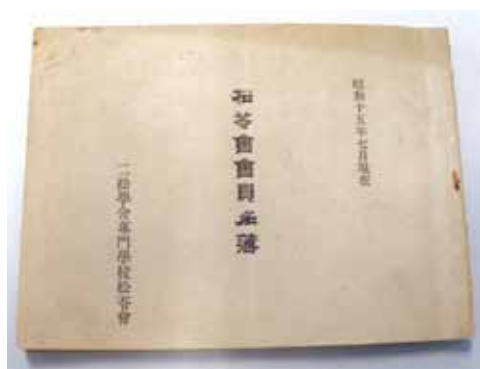 昭和十五年七月現在
松苓會會員名簿
二松學舍專門學校松苓會